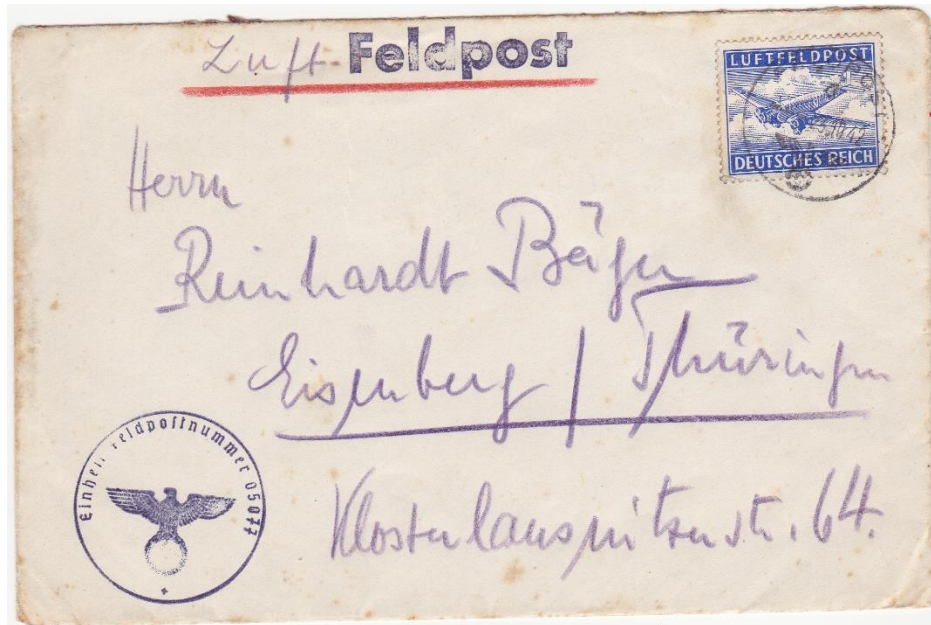 Luft-Feldpost
LUFTFELDPOST
DEUTSCHES REICH
Herrn
Reinhardt Bäger
Eisenberg / Thüringen
Klosterlausnitzerstr. 64.
Einheit Feldpostnummer 05077